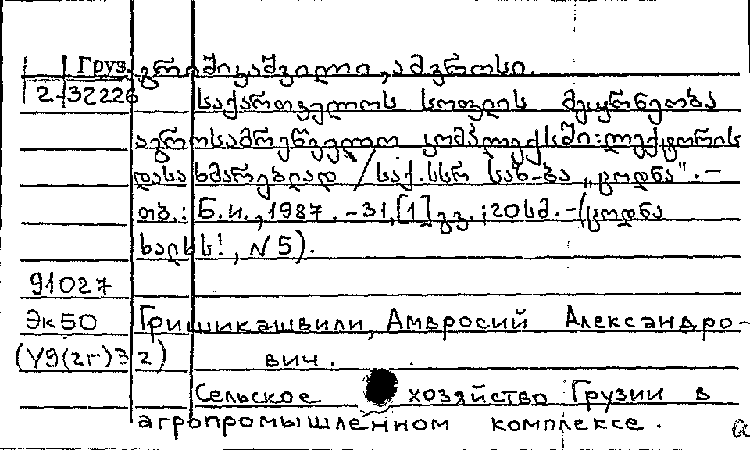 Груз. გრიშიკაშვილი, ამვროსი.
2-32226 საქართველოს სოფლის მეურნეობა
აგროსამრეწველო კომპლექსში: ლექტორის
დასახმარებლად / საქ. სსრ საზ-ბა „ცოდნა". –
თბ.: Б.и., 1987. – 31, [1] გვ.; 20 სმ. – (ცოდნა
ხალხს!, N 5).
91027
Эк50 Гришикашвили, Амвросий Александро-
(У9(2г)32) вич.
Сельское хозяйство Грузии в
агропромышленном комплексе.